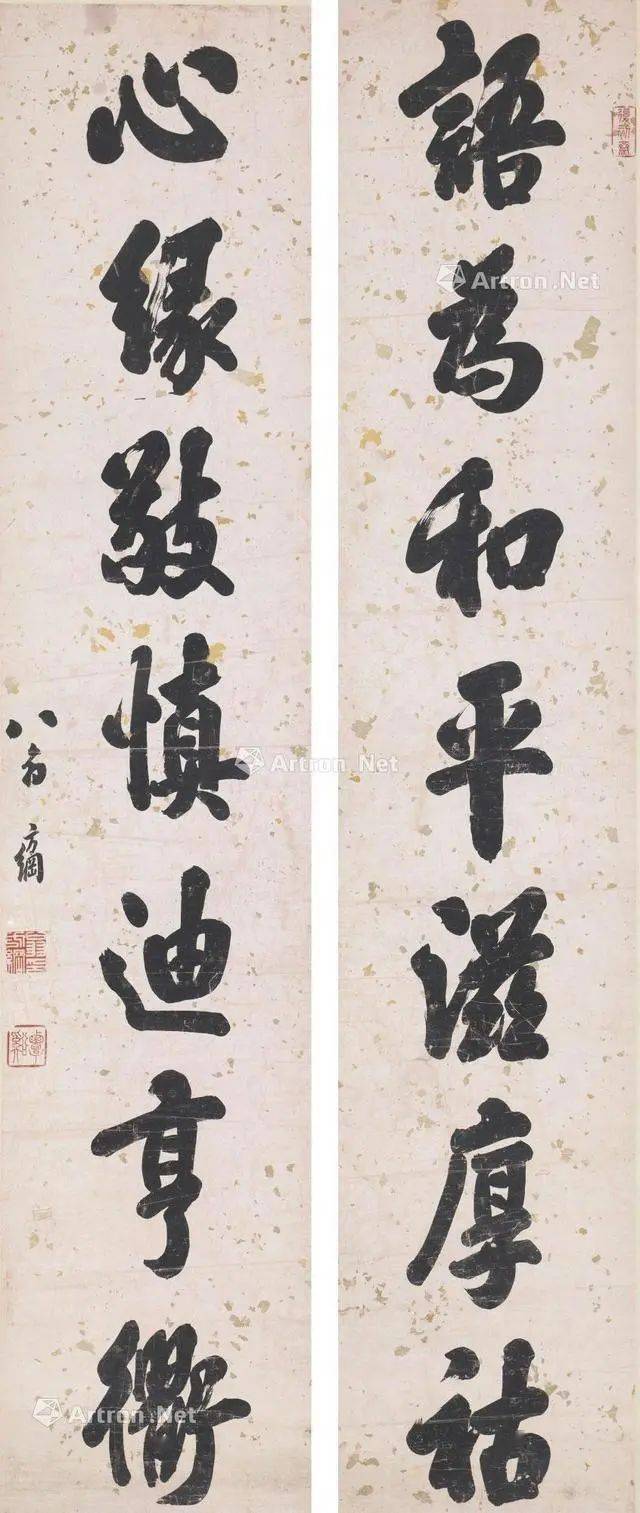 語為和平滋厚祜
心緣敬慎迪亨衢
翁方綱
覃谿
Artron.Net
Artron.Net
Artron.Net